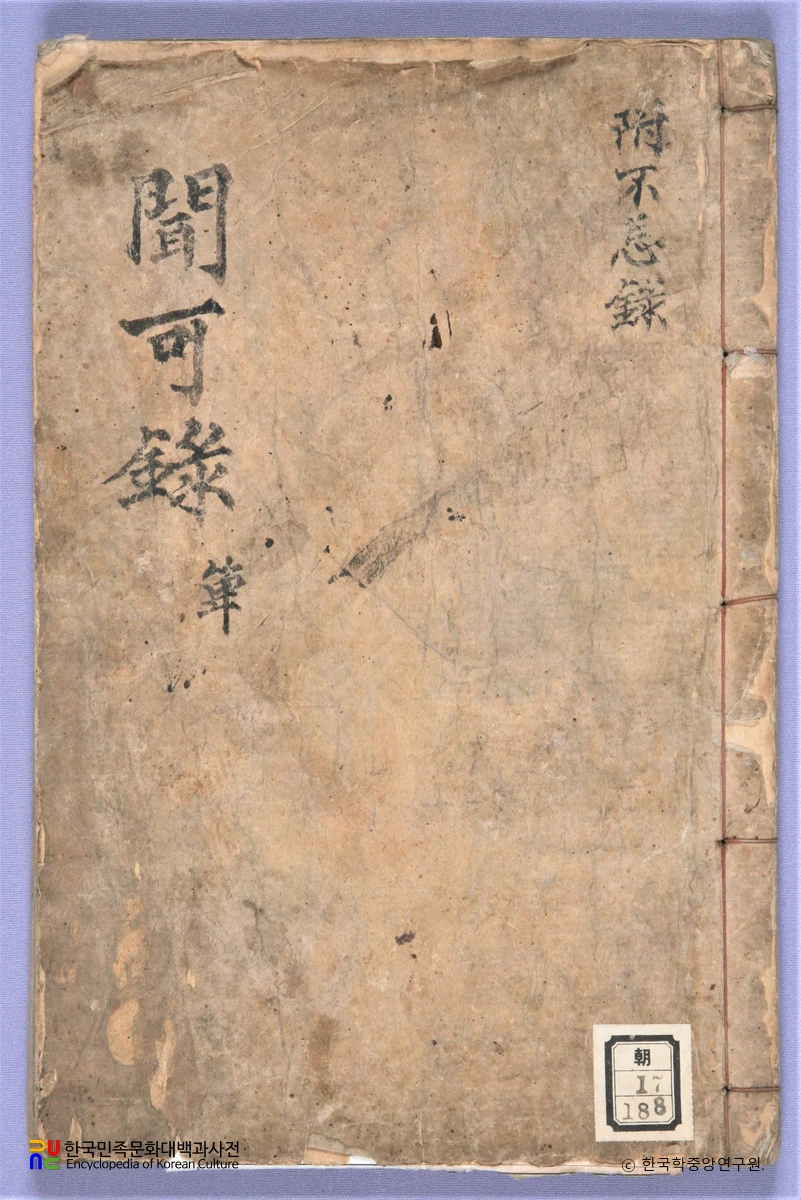 附不忘錄
聞可錄
朝
17
188
한국민족문화대백과사전
Encyclopedia of Korean Culture
© 한국학중앙연구원.